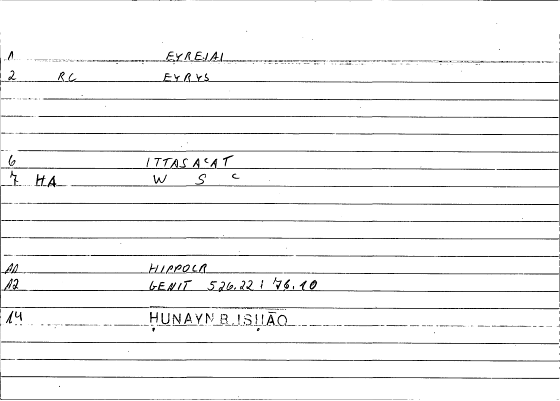 1 EYREJAI
2 RC EYRYS
6 ITTASAᶜAT
7 HA W S C
11 HIPPOCR
12 GENIT 526.22 : 76.10
14 ḤUNAYN B.ISḤĀQ